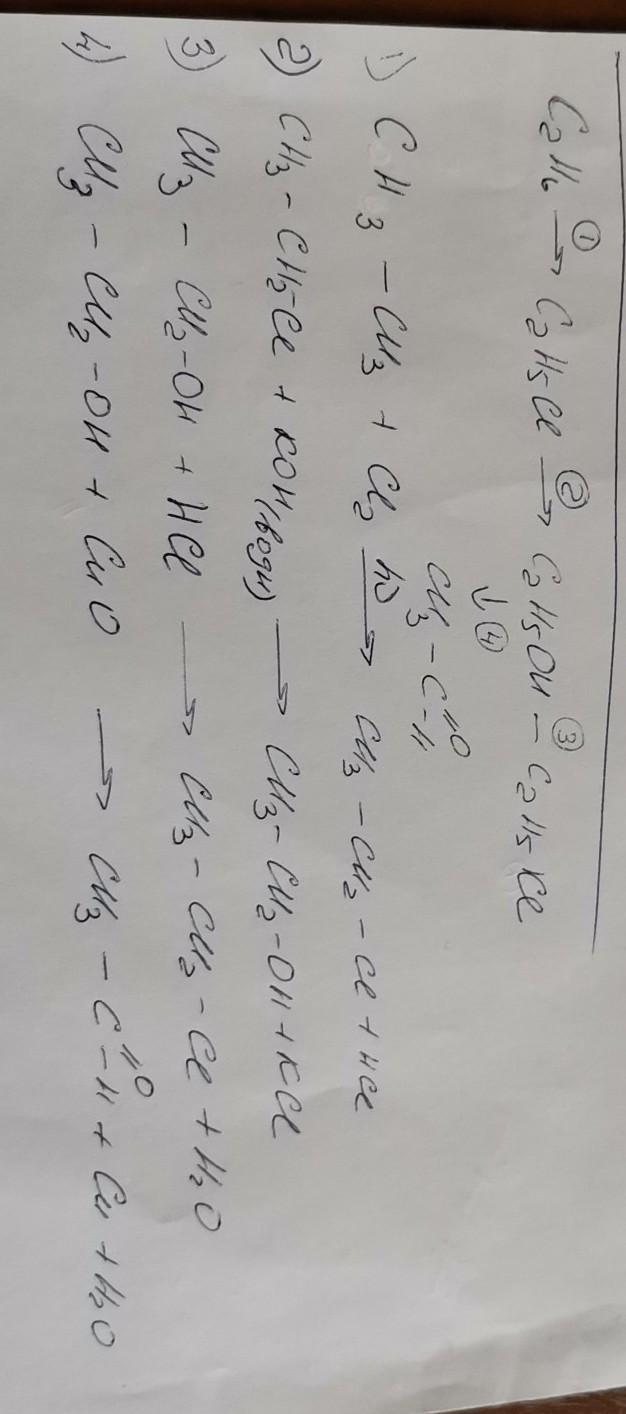 C₂H₆ →① C₂H₅Cl →② C₂H₅OH –③ C₂H₅Cl
↓④
CH₃ – C =O – H
1) CH₃ – CH₃ + Cl₂ hν → CH₃ – CH₂ – Cl + HCl
2) CH₃ – CH₂Cl + KOH (водн) → CH₃ – CH₂ – OH + KCl
3) CH₃ – CH₂ – OH + HCl → CH₃ – CH₂ – Cl + H₂O
4) CH₃ – CH₂ – OH + CuO → CH₃ – C =O – H + Cu + H₂O